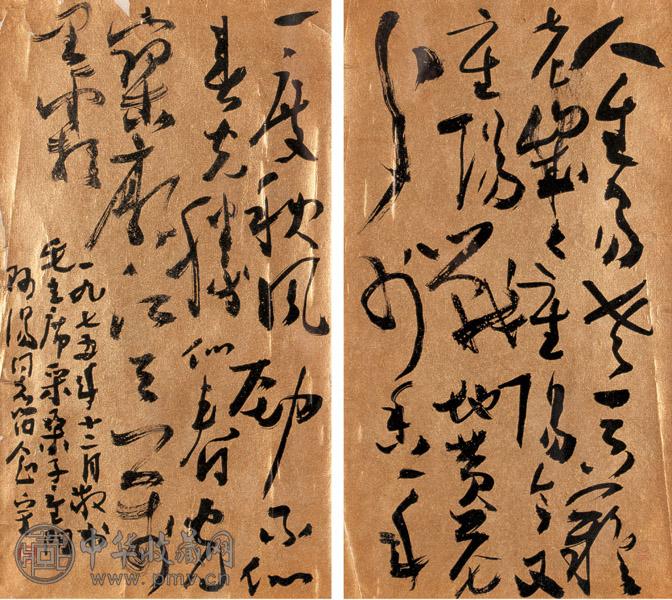 人生易老天難
老歲々重陽今又
重陽戰地黄花
分外香一年
一度秋风劲不似
春光勝似春光
寥廓江天万
里霜
一九七五年十二月敬书
毛主席采桑子
同志留念
中华收藏网
www.pmv.cn